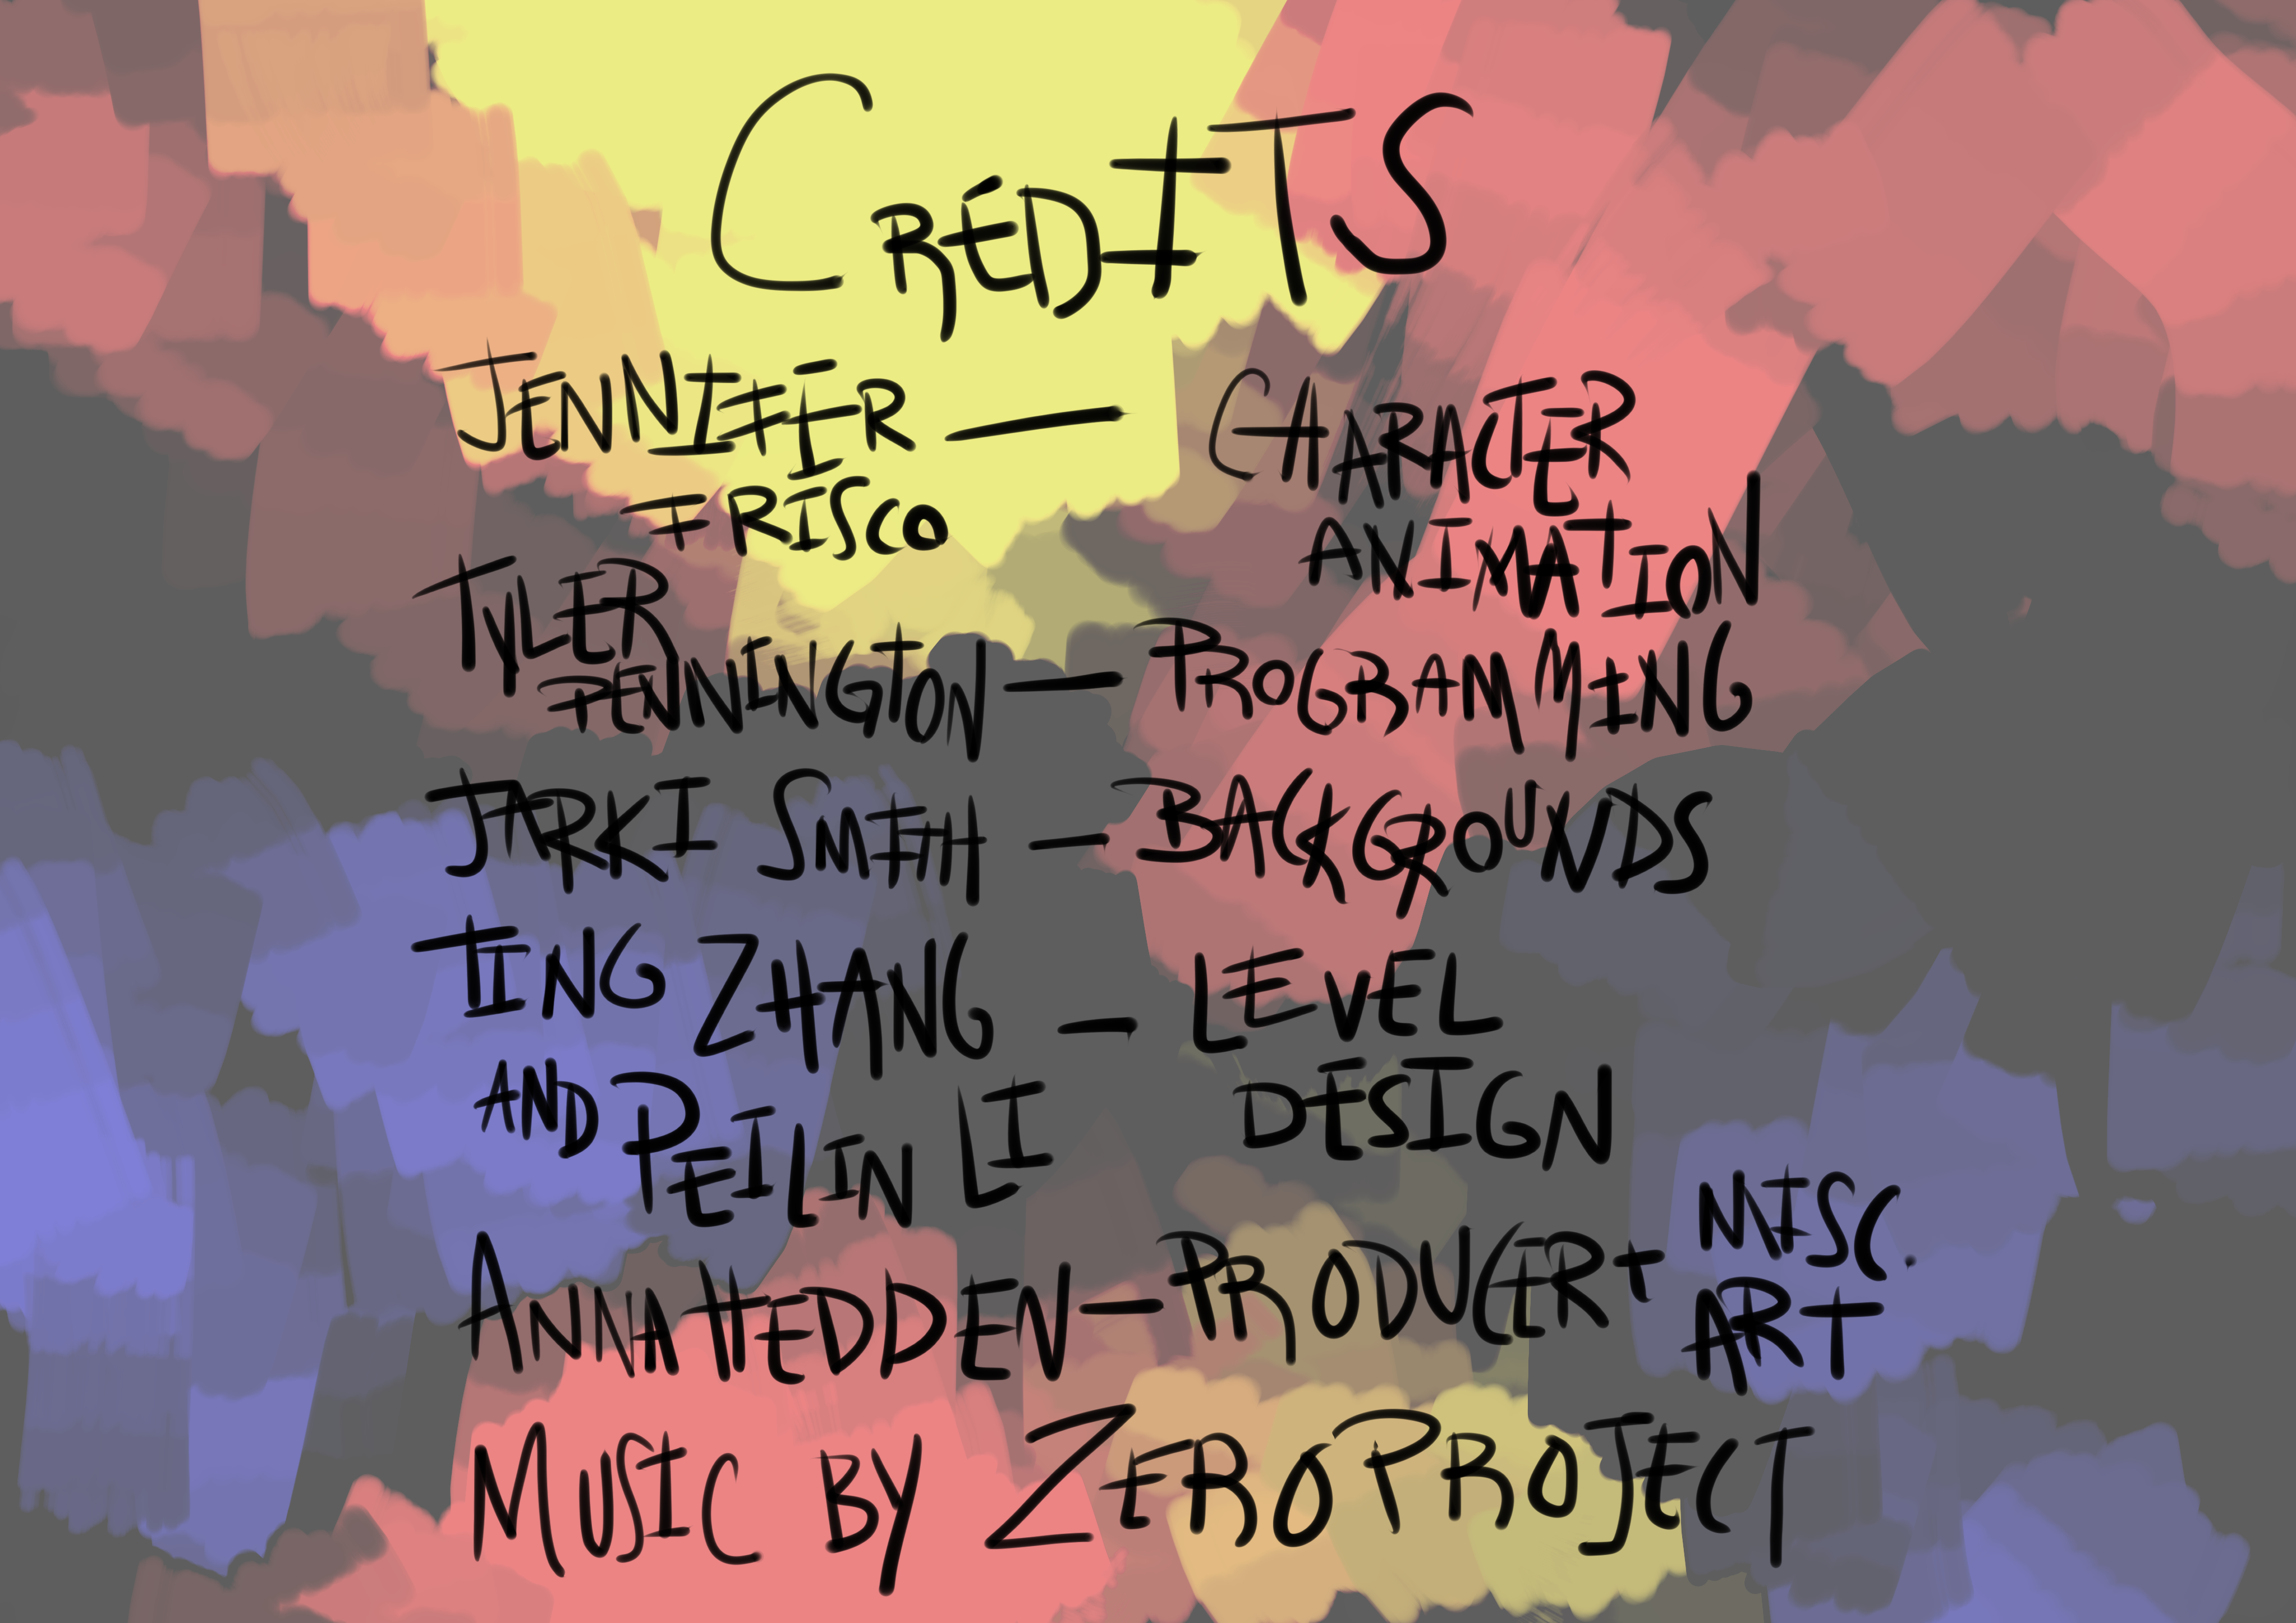 CREDITS
JENNIFER — CHARACTER
FRISCO ANIMATION
TYLER
PENNINGTON — PROGRAMMING
JARKI SMITH — BACKGROUNDS
TING ZHANG — LEVEL
AND PEILIN LI DESIGN
ANNA HEDDEN — PRODUCER + MISC.
ART
MUSIC BY ZEROPROJECT